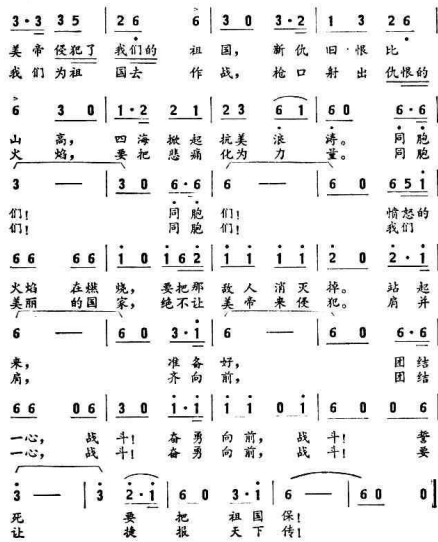 3·3 35 | 26 6 | 30 3·2 | 1 3 26 |
美帝侵犯了 我们的 祖 国， 新仇 旧·恨 比
我们为祖 国去 作 战， 枪口 射出 仇恨的
6 30 | 1·2 21 | 23 61 | 60 6·6 |
山 高， 四海 掀起 抗美 浪 涛。 同胞
火 焰， 要把 悲痛 化为 力 量。 同胞
3 — | 30 6·6 | 6 — | 60 651 |
们！ 同胞 们！ 愤怒的
们！ 同胞 们！ 我们
66 66 | 10 162 | 11 11 | 20 2·1 |
火焰 在燃 烧， 要把那 敌人 消灭 掉。 站起
美丽 的国 家， 绝不让 美帝 来侵 犯。 肩并
6 — | 60 3·1 | 6 — | 60 6·6 |
来， 准备 好， 团结
肩， 齐向 前， 团结
66 06 | 30 1·1 | 11 01 | 60 06 |
一心， 战 斗！ 奋勇 向前， 战 斗！ 誓
一心， 战 斗！ 奋勇 向前， 战 斗！ 要
3 — | 3 2·1 | 60 3·1 | 6 — | 60 0 ‖
死 要 把 祖国 保！
让 捷 报 天下 传！